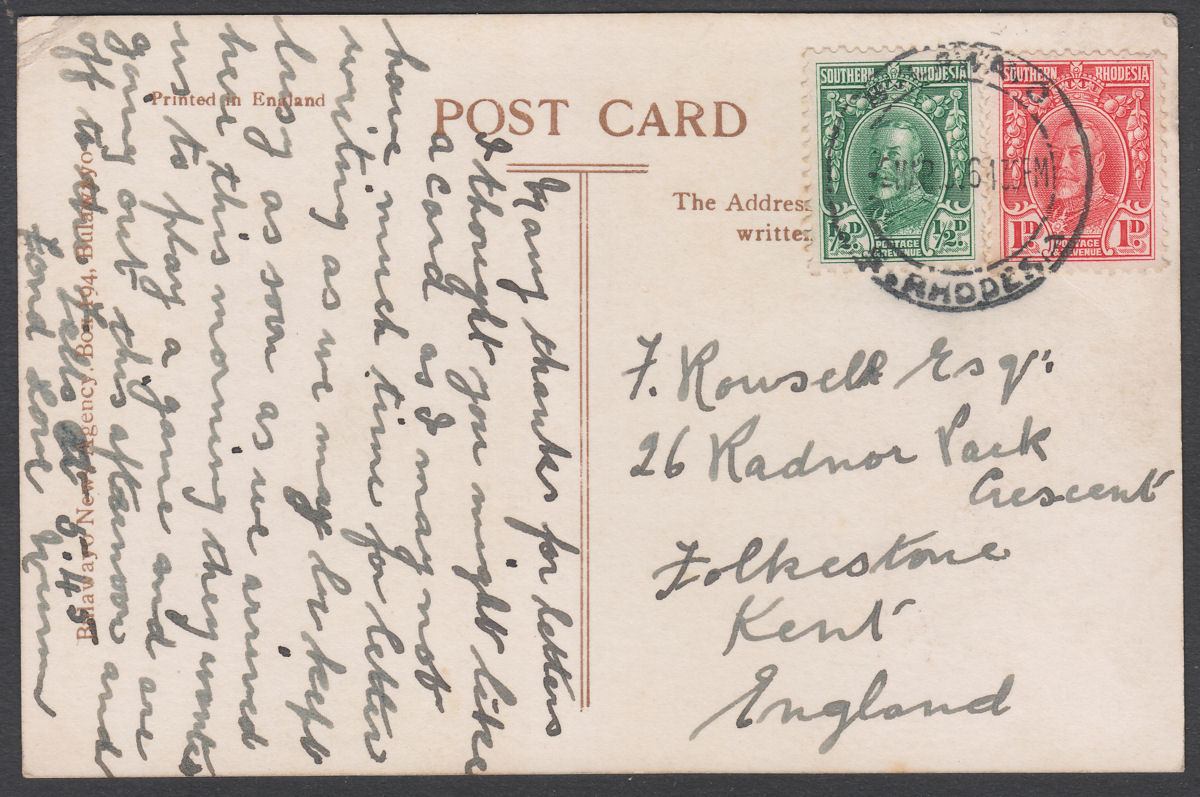 Printed in England
POST CARD
The Address
written
SOUTHERN RHODESIA
½D. ½D.
POSTAGE & REVENUE
SOUTHERN RHODESIA
1D. 1P.
POSTAGE & REVENUE
S. RHODESIA
Bulawayo News Agency, Box 194, Bulawayo
Many thanks for letters
I thought you might like
a card as I may not
have much time for letter
writing as we may be kept
busy as soon as we arrived
here this morning they wanted
us to play a game and are
going out this afternoon and
off to at 5.45
Fond love
F. Rowsell Esqr.
26 Radnor Park
Crescent
Folkestone
Kent
England